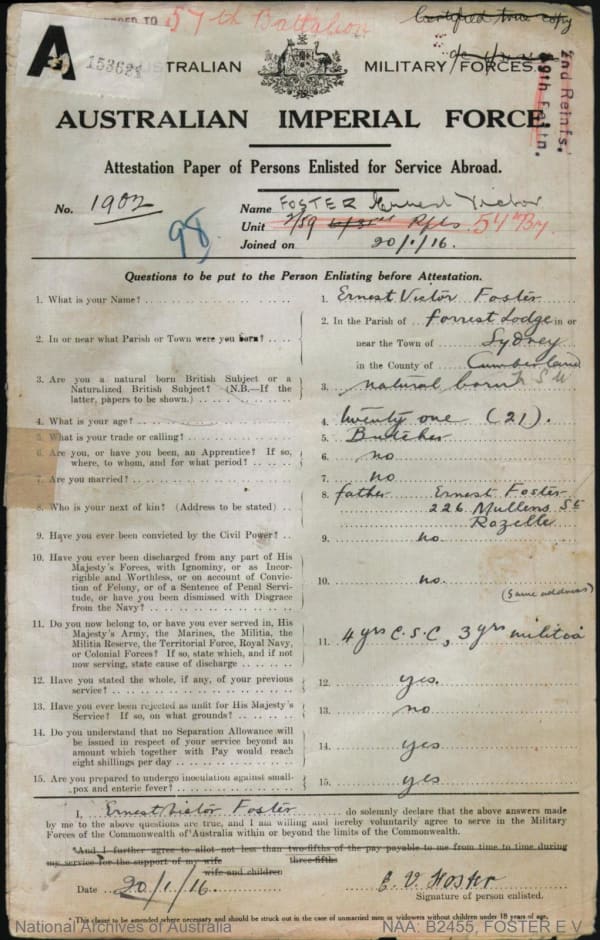 TO 57th Battalion
Certified true copy
A 153624
AUSTRALIAN MILITARY FORCES.
2nd Reinfs.
59th Battn.
AUSTRALIAN IMPERIAL FORCE.
Attestation Paper of Persons Enlisted for Service Abroad.
No. 1902
98
Name FOSTER Ernest Victor
Unit 2/59 Rfts. 54th By
Joined on 20/1/16.
Questions to be put to the Person Enlisting before Attestation.
1. What is your Name? 1. Ernest Victor Foster
2. In or near what Parish or Town were you born? 2. In the Parish of Forrest Lodge in or
near the Town of Sydney
in the County of Cumberland
3. Are you a natural born British Subject or a 3. natural born
Naturalized British Subject? (N.B.—If the
latter, papers to be shown.)
4. What is your age? 4. twenty one (21).
5. What is your trade or calling? 5. Butcher
6. Are you, or have you been, an Apprentice? If so, 6. no
where, to whom, and for what period?
7. Are you married? 7. no
8. Who is your next of kin? (Address to be stated) 8. father Ernest Foster
226 Mullens St
Rozelle
9. Have you ever been convicted by the Civil Power? 9. no
10. Have you ever been discharged from any part of His
Majesty's Forces, with Ignominy, or as Incor-
rigible and Worthless, or on account of Convic-
tion of Felony, or of a Sentence of Penal Servi-
tude, or have you been dismissed with Disgrace
from the Navy? 10. no.
(Same address)
11. Do you now belong to, or have you ever served in, His
Majesty's Army, the Marines, the Militia, the
Militia Reserve, the Territorial Force, Royal Navy,
or Colonial Forces? If so, state which, and if not
now serving, state cause of discharge 11. 4 yrs C.S.C, 3 yrs militia
12. Have you stated the whole, if any, of your previous
service? 12. yes.
13. Have you ever been rejected as unfit for His Majesty's
Service? If so, on what grounds? 13. no
14. Do you understand that no Separation Allowance will
be issued in respect of your service beyond an
amount which together with Pay would reach
eight shillings per day 14. yes
15. Are you prepared to undergo inoculation against small-
pox and enteric fever? 15. yes
I, Ernest Victor Foster do solemnly declare that the above answers made
by me to the above questions are true, and I am willing and hereby voluntarily agree to serve in the Military
Forces of the Commonwealth of Australia within or beyond the limits of the Commonwealth.
*And I further agree to allot not less than two-fifths of the pay payable to me from time to time during
three-fifths
my service for the support of my wife
wife and children
Date 20/1/16. E. V. Foster
Signature of person enlisted.
* This clause to be amended where necessary and should be struck out in the case of unmarried men or widowers without children under 18 years of age.
National Archives of Australia NAA: B2455, FOSTER E V